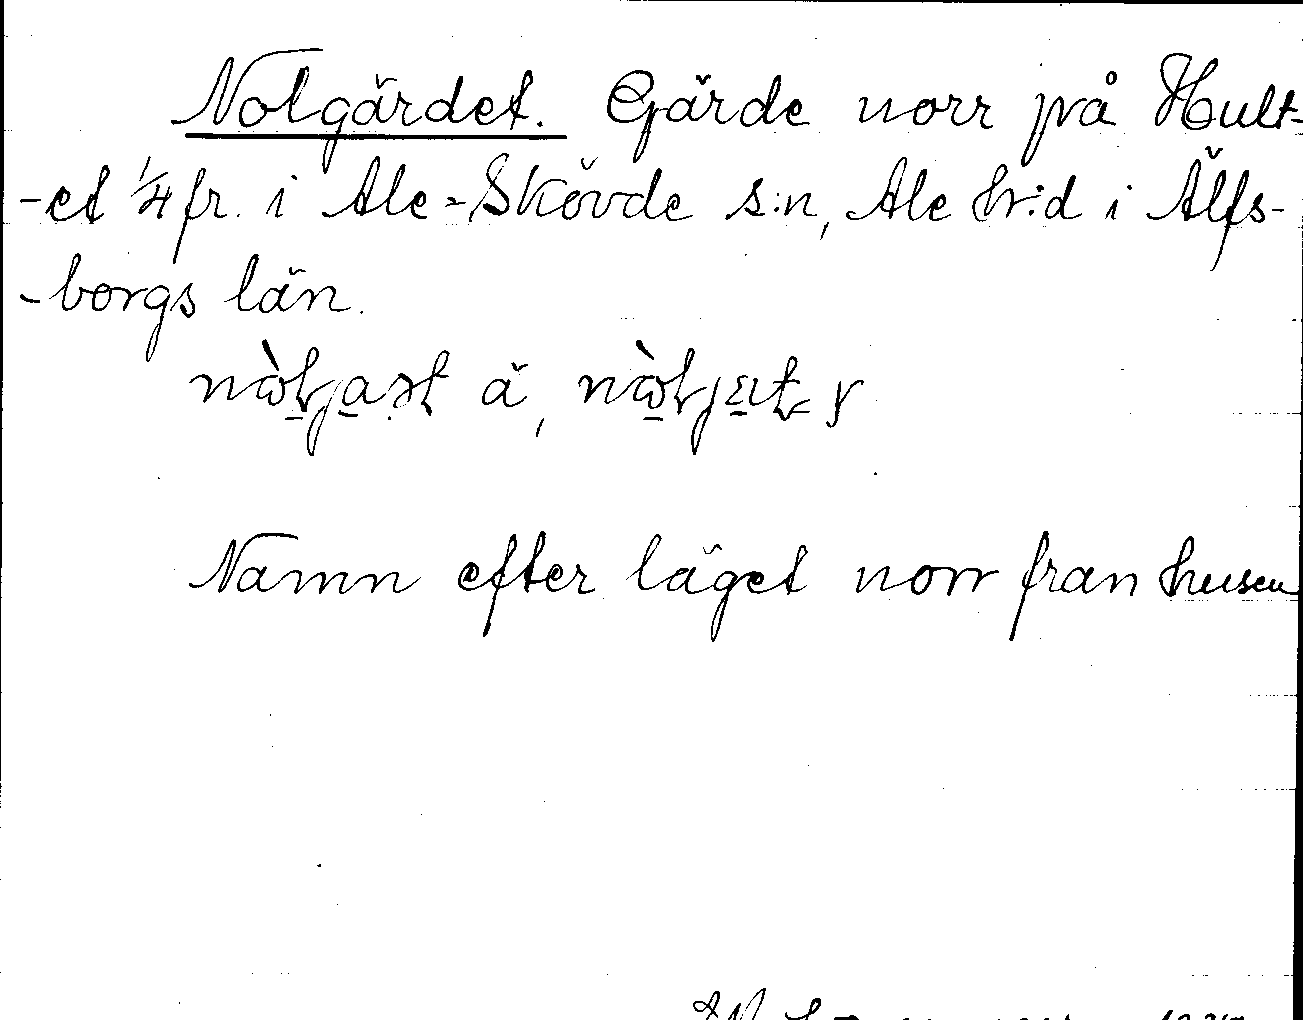 Nolgärdet. Gärde norr på Hult-
-et 1/4 fr. i Ale-Skövde s:n, Ale hr:d i Älfs-
-borgs län.
Namn efter läget norr fran husen